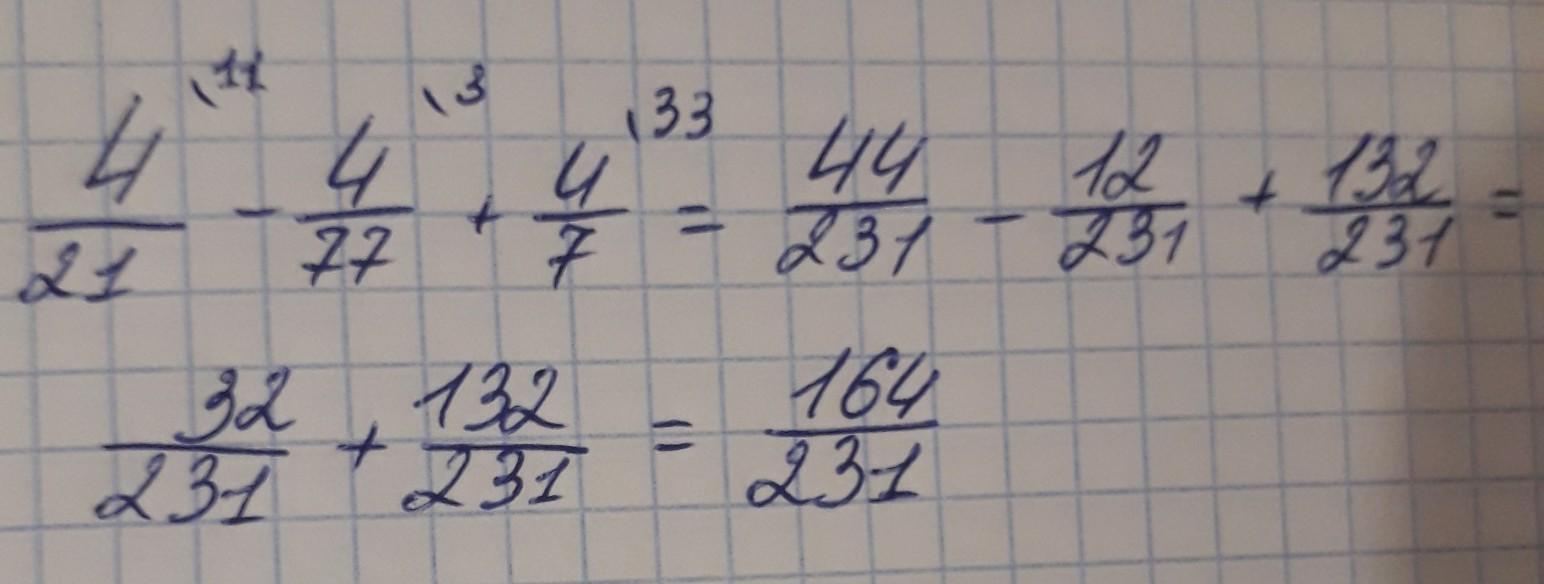 4/21 \11 - 4/77 \3 + 4/7 \33 = 44/231 - 12/231 + 132/231 =
32/231 + 132/231 = 164/231